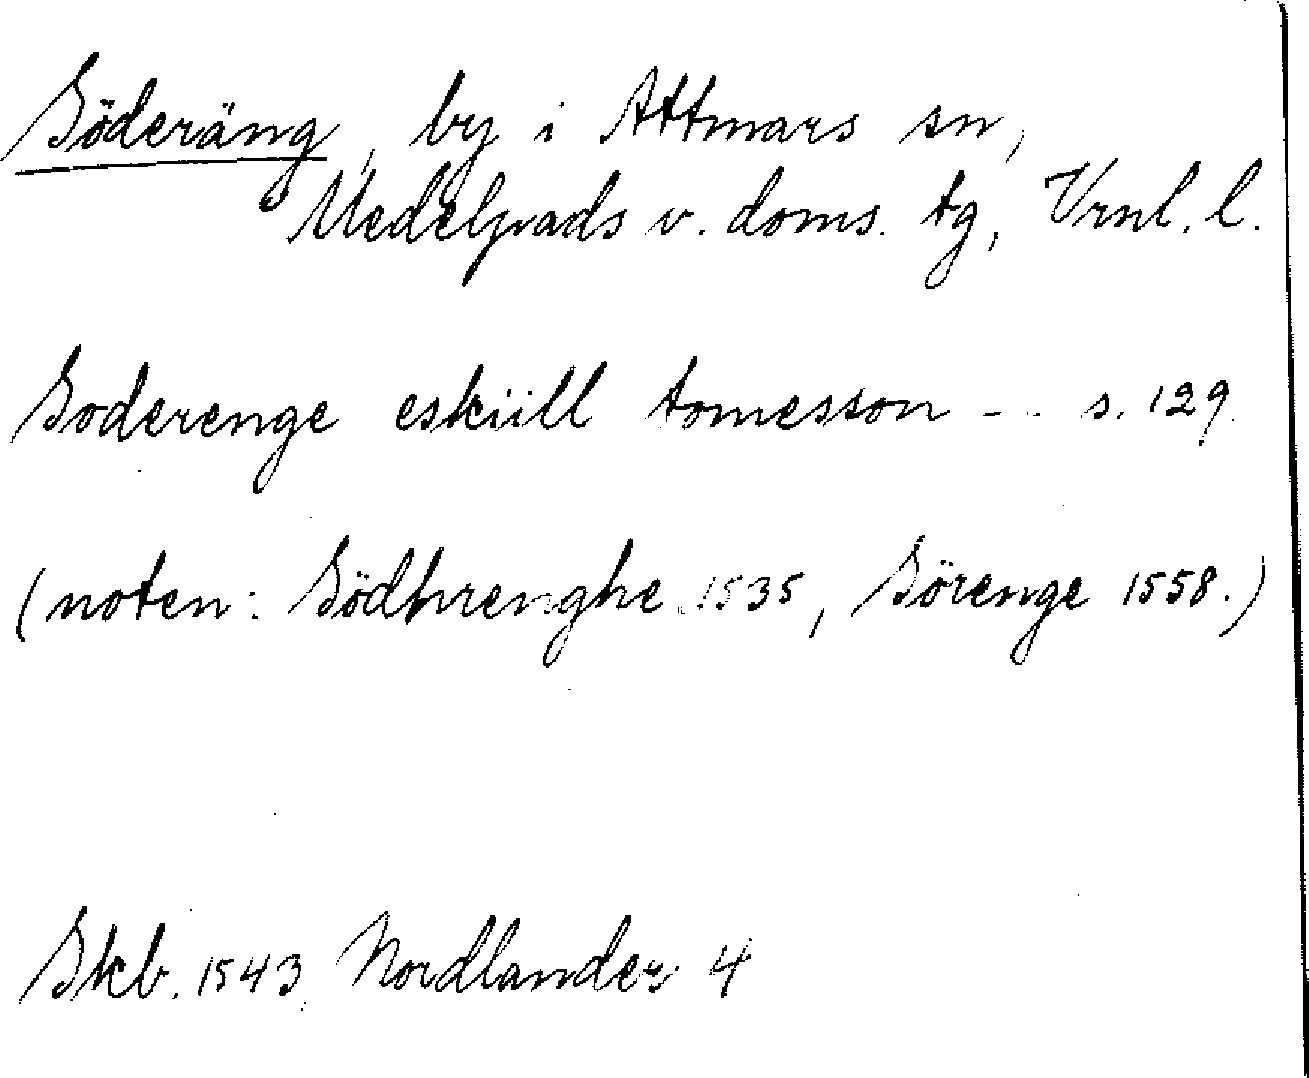 Söderäng, by i Attmars sn,
Medelpads v. doms. tg, Vrnl. l.
Soderenge eskiill tomesson - - s. 129.
(noten: Södhrenghe 1535, Sörenge 1558.)
Skb. 1543 Nordlander 4